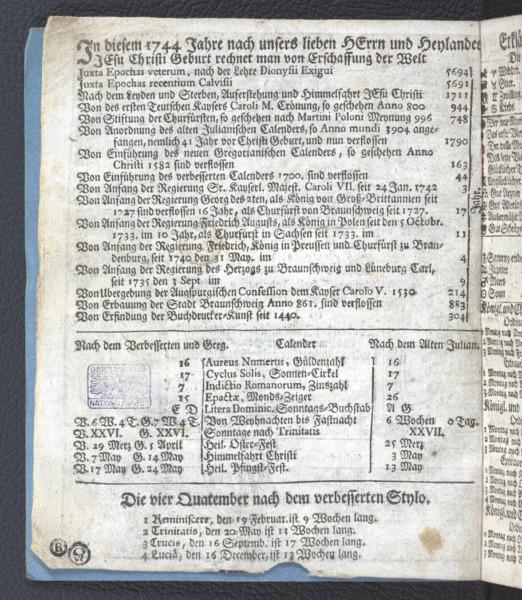 In diesem 1744 Jahre nach unsers lieben HErrn und Heylandes
JEsu Christi Geburt rechnet man von Erschaffung der Welt
Juxta Epochas veterum, nach der Lehre Dionysii Exigui 5694
Juxta Epochas recentium Calvisii 5691
Nach dem Leyden und Sterben, Auferstehung und Himmelfahrt JEsu Christi 1711
Von des ersten Teutschen Kaysers Caroli M. Crönung, so geschehen Anno 800 944
Von Stiftung der Churfürsten, so geschehen nach Martini Poloni Meynung 996 748
Von Anordnung des alten Julianischen Calenders, so Anno mundi 3904 ange-
fangen, nemlich 41 Jahr vor Christi Geburt, und nun verflossen 1790
Von Einführung des neuen Gregorianischen Calenders, so geschehen Anno
Christi 1582 sind verflossen 163
Von Einführung des verbesserten Calenders 1700. sind verflossen 44
Von Anfang der Regierung Sr. Kayserl. Majest. Caroli VII. seit 24 Jan. 1742 3
Von Anfang der Regierung Georg des 2ten, als König von Groß-Brittannien seit
1727 sind verflossen 16 Jahr, als Churfürst von Braunschweig seit 1727. 17
Von Anfang der Regierung Friedrich Augusts, als König in Polen seit den 5 Octobr.
1733. im 10 Jahr, als Churfürst in Sachsen seit 1733. im 11
Von Anfang der Regierung Friedrich, König in Preussen und Churfürst zu Bran-
denburg, seit 1740 den 31 May. im 4
Von Anfang der Regierung des Herzogs zu Braunschweig und Lüneburg Carl,
seit 1735 den 3 Sept im 9
Von Übergebung der Augspurgischen Confession dem Kayser Carolo V. 1530 214
Von Erbauung der Stadt Braunschweig Anno 861. sind verflossen 883
Von Erfindung der Buchdrucker-Kunst seit 1440. 304
Jahr.
Nach dem Verbesserten und Greg. Calender Nach dem Alten Julian.
16 Aureus Numerus, Güldenzahl 16
17 Cyclus Solis, Sonnen-Cirkel 17
7 Indictio Romanorum, Zinszahl 7
15 Epactæ, Monds-Zeiger 26
E D Litera Dominic. Sonntags-Buchstab A G
V. 6 W. 4 T. G. 7 W. 4 T Von Weyhnachten bis Fastnacht 6 Wochen 0 Tag.
V. XXVI. G. XXVI. Sonntage nach Trinitatis XXVII.
V. 29 Merz G. 5 April Heil. Oster-Fest 25 Merz
V. 7 May G. 14 May Himmelfahrt Christi 3 May
V. 17 May G. 24 May Heil. Pfingst-Fest. 13 May
Die vier Quatember nach dem verbesserten Stylo.
1 Reminiscere, den 19 Februar. ist 9 Wochen lang.
2 Trinitatis, den 20 May ist 13 Wochen lang.
3 Crucis, den 16 Septemb. ist 17 Wochen lang.
4 Luciä, den 16 December, ist 13 Wochen lang.